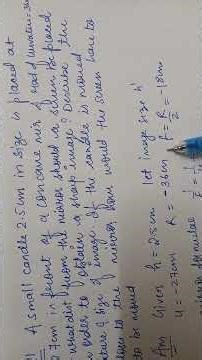 A small candle 2.5cm in size is placed at
27cm in front of a concave mirror of radius of curvature 36
what dist from the mirror should a screen be placed
in order to obtain a sharp image? Describe the
nature & size of image. If the candle is moved
closer to the mirror, how would the screen have to
to be moved
Ans Given h = 2.5cm let image size h'
u = -27cm R = -36cm f = R/2 = -18cm
mirror formula